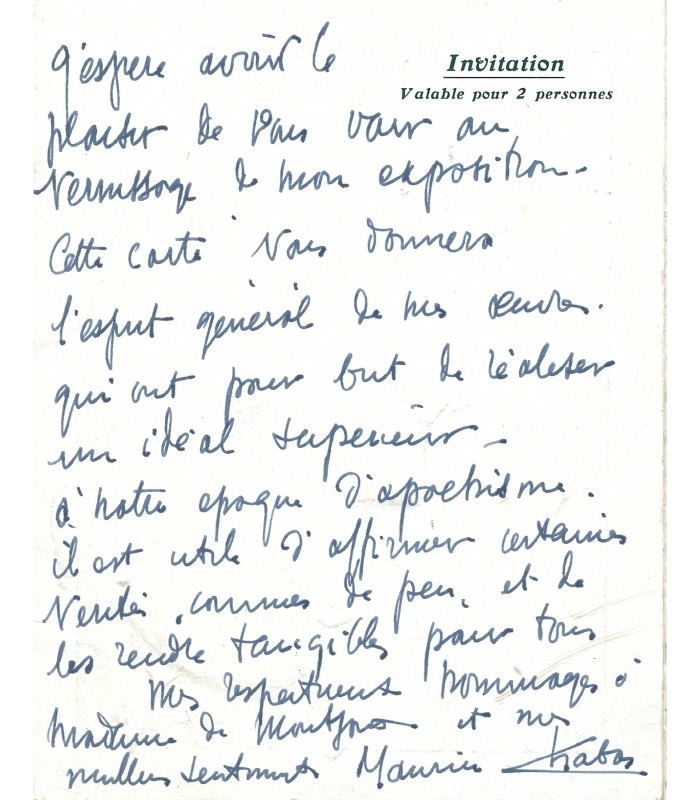 J'espere avoir le
Invitation
Valable pour 2 personnes
plaisir de Vous voir au
Vernissage de mon exposition.
Cette carte Vous donnera
l'esprit général de mes œuvres.
qui ont pour but de réaliser
un idéal supérieur _
à notre epoque
il est utile d'affirmer certaines
Verités, connues de peu, et de
les rendre tangibles pour tous
Mes respectueux hommages à
madame de et mes
meilleurs sentiments Maurice Chabas